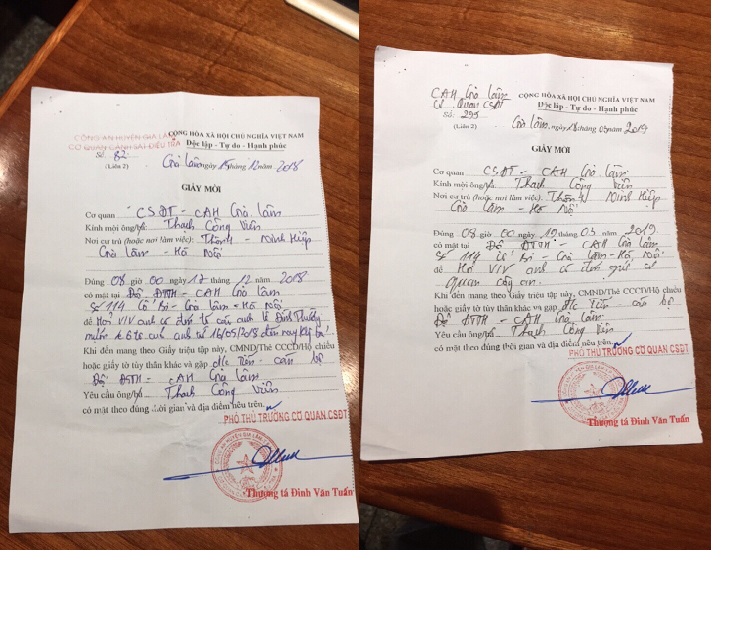 CÔNG AN HUYỆN GIA LÂM
CƠ QUAN CẢNH SÁT ĐIỀU TRA
Số: 82
(Liên 2)
CỘNG HÒA XÃ HỘI CHỦ NGHĨA VIỆT NAM
Độc lập - Tự do - Hạnh phúc
Gia Lâm, ngày 15 tháng 12 năm 2018
GIẤY MỜI
Cơ quan CSĐT - CAH Gia Lâm
Kính mời ông/bà: Thạch Công Viên
Nơi cư trú (hoặc nơi làm việc): Thôn 1 - Ninh Hiệp
Gia Lâm - Hà Nội
Đúng 08 giờ 00 ngày 17 tháng 12 năm 2018
có mặt tại Đội ĐTTH - CAH Gia Lâm
Số 114 Cổ Bi - Gia Lâm - Hà Nội
để Hỏi V/V anh có đơn tố cáo anh Lê Đình
từ 16/05/2018 đến nay
Khi đến mang theo Giấy triệu tập này, CMND/Thẻ CCCD/Hộ chiếu
hoặc giấy tờ tùy thân khác và gặp đ/c Tiến - cán bộ
Đội ĐTTH - CAH Gia Lâm
Yêu cầu ông/bà: Thạch Công Viên
có mặt theo đúng thời gian và địa điểm nêu trên.
PHÓ THỦ TRƯỞNG CƠ QUAN CSĐT
Thượng tá Đinh Văn Tuấn
CAH Gia Lâm
Cơ Quan CSĐT
Số: 295
(Liên 2)
CỘNG HÒA XÃ HỘI CHỦ NGHĨA VIỆT NAM
Độc lập - Tự do - Hạnh phúc
Gia Lâm, ngày 18 tháng 03 năm 2019
GIẤY MỜI
Cơ quan CSĐT - CAH Gia Lâm
Kính mời ông/bà: Thạch Công Viên
Nơi cư trú (hoặc nơi làm việc): Thôn 1 Ninh Hiệp
Gia Lâm - Hà Nội
Đúng 08 giờ 00 ngày 19 tháng 03 năm 2019
có mặt tại Đội ĐTTH - CAH Gia Lâm
Số 114 Cổ Bi - Gia Lâm - Hà Nội
để Hỏi V/V anh có đơn gửi cơ
quan công an.
Khi đến mang theo Giấy triệu tập này, CMND/Thẻ CCCD/Hộ chiếu
hoặc giấy tờ tùy thân khác và gặp đ/c Tiến cán bộ
Đội ĐTTH - CAH Gia Lâm
Yêu cầu ông/bà: Thạch Công Viên
có mặt theo đúng thời gian và địa điểm nêu trên.
PHÓ THỦ TRƯỞNG CƠ QUAN CSĐT
Thượng tá Đinh Văn Tuấn